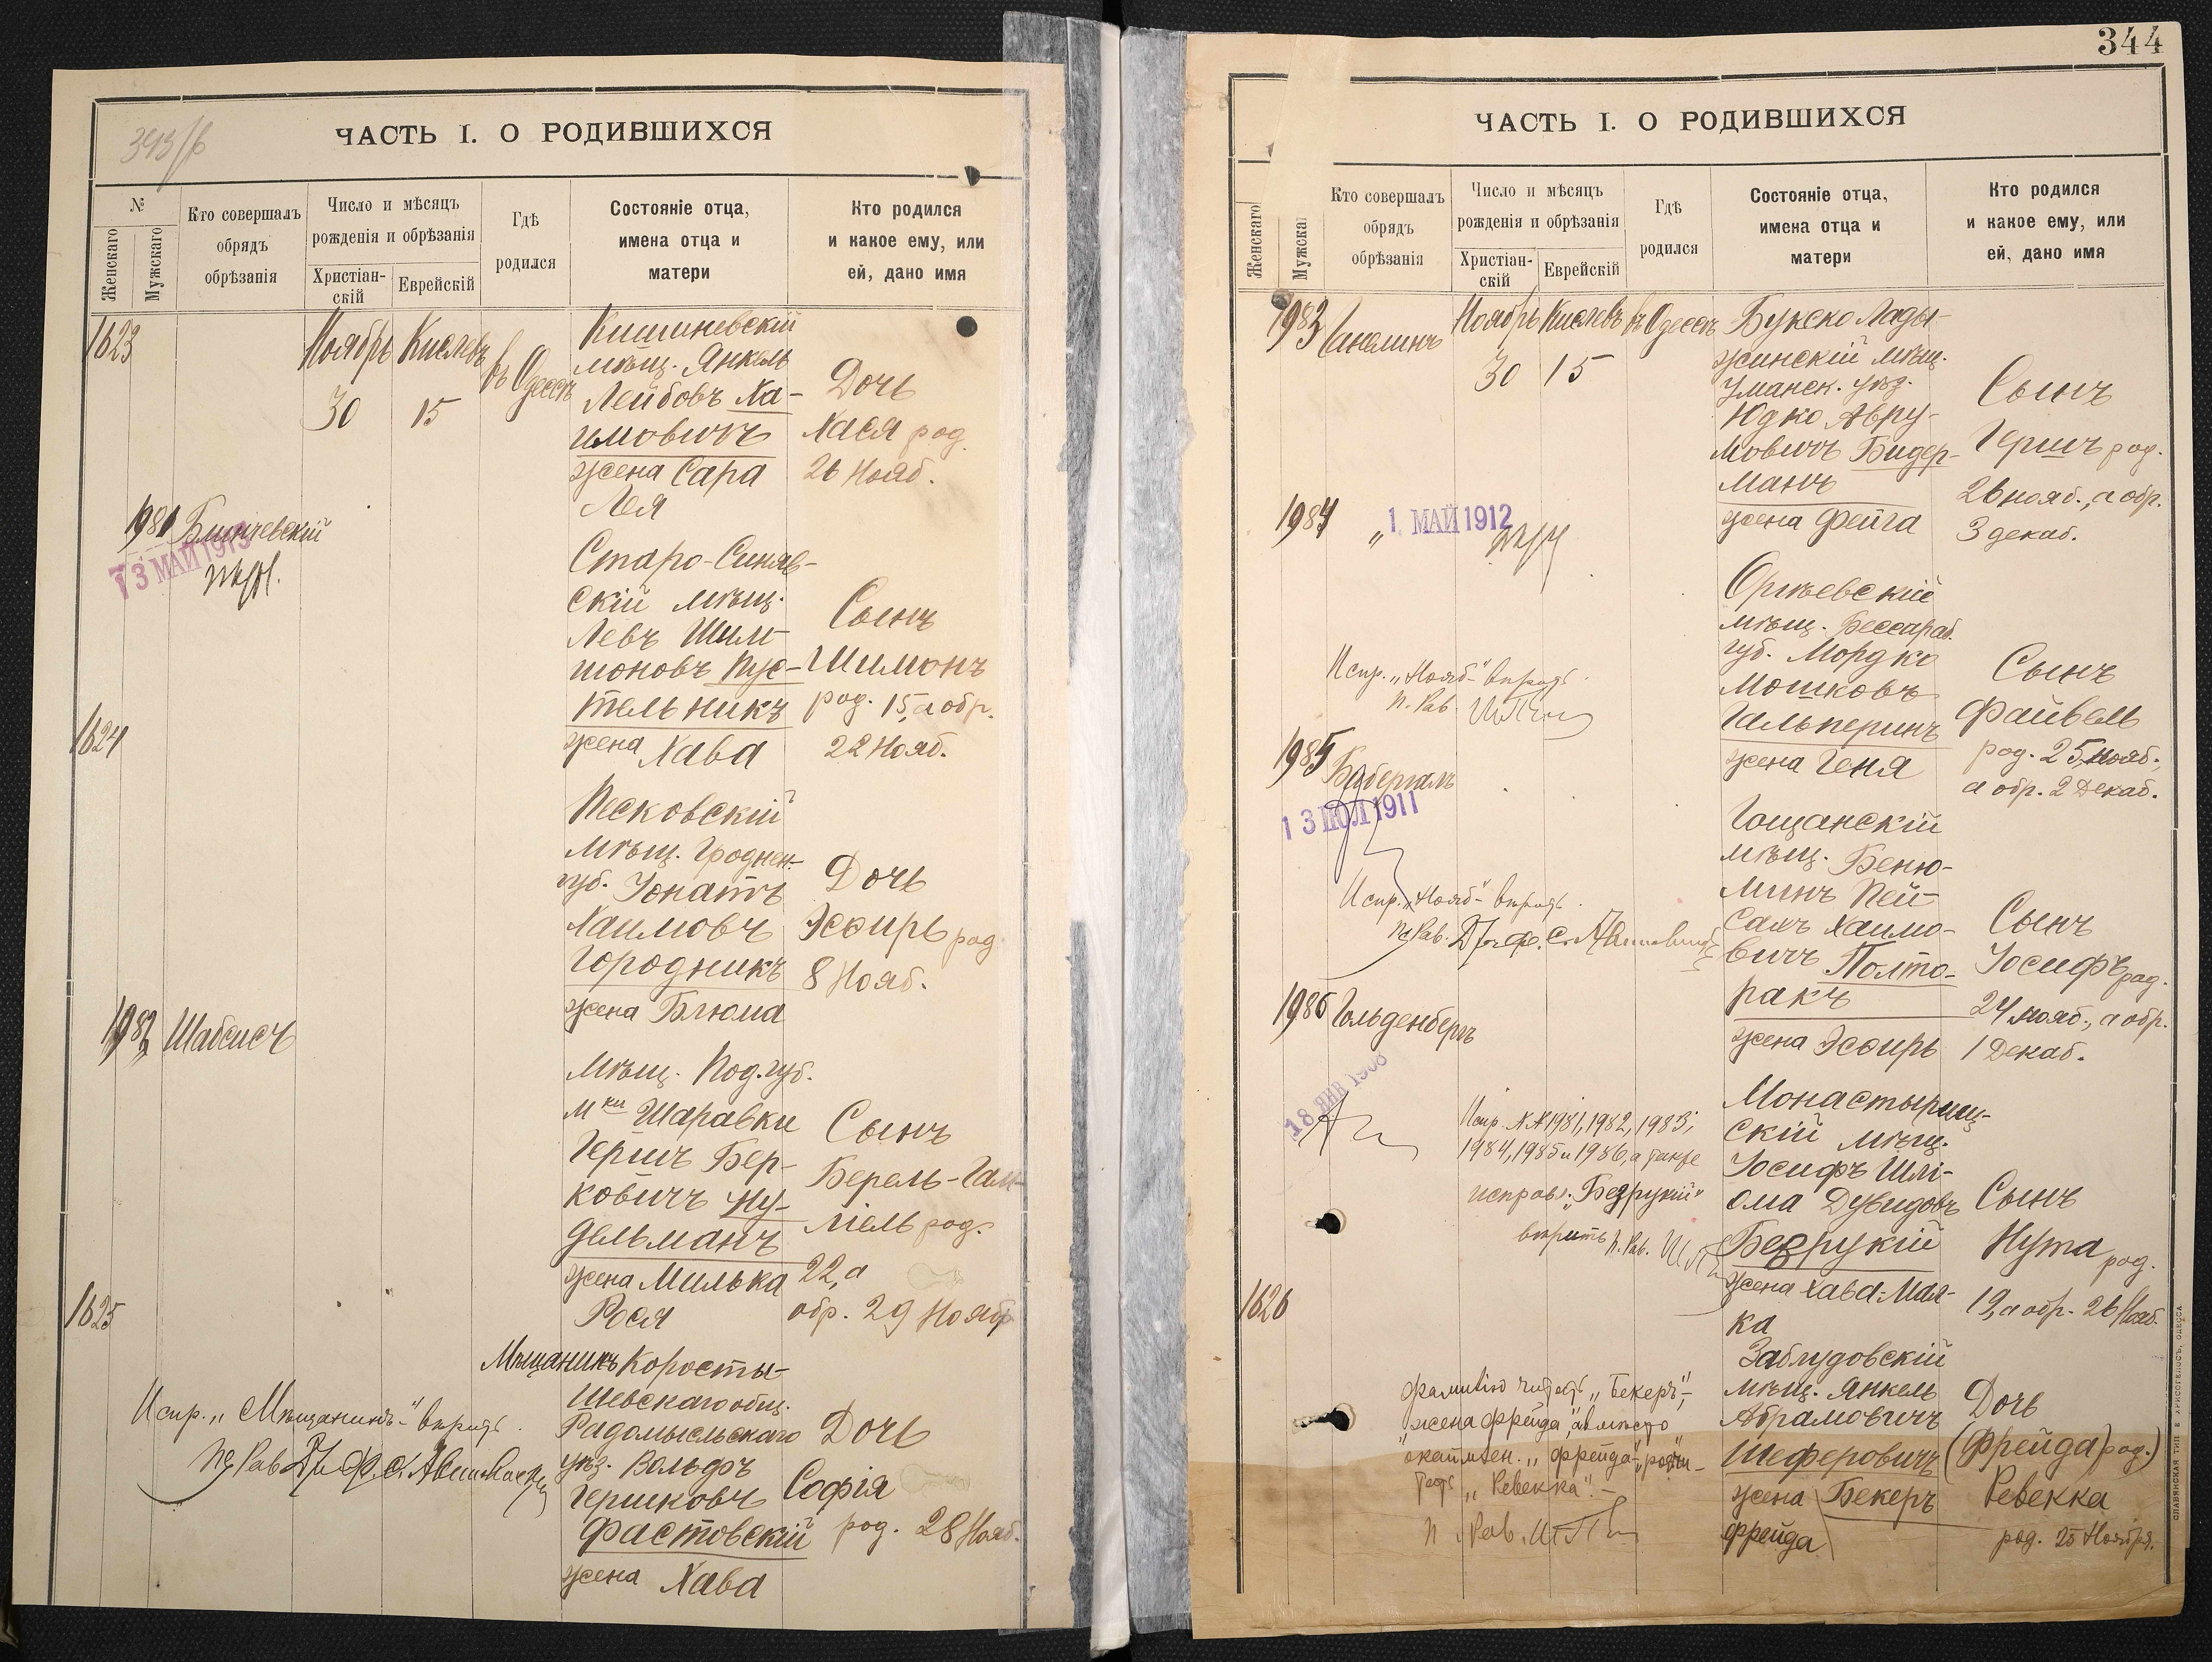 343/b
ЧАСТЬ I. О РОДИВШИХСЯ
№
Женскаго
Мужскаго
Кто совершалъ
обрядъ
обрѣзанія
Число и мѣсяцъ
рожденія и обрѣзанія
Христіан-
скій
Еврейскій
Гдѣ
родился
Состояніе отца,
имена отца и
матери
Кто родился
и какое ему, или
ей, дано имя
1623
Ноябрь
30
Кислевъ
15
въ Одессѣ
Кишиневскій
мѣщ. Янкель
Лейбовъ Ха-
имовичъ
жена Сара
Лея
Дочь
Хася род.
26 Нояб.
1981
Блинчевскій
13 МАЙ 1913
Старо-Синяв-
скій мѣщ.
Левъ Шим-
шоновъ Пус-
тельникъ
жена Хава
Сынъ
Шимонъ
род. 15, а обр.
22 Нояб.
1624
Песковскій
мѣщ. Гроднен.
губ. Іонатъ
Хаимовъ
Городникъ
жена Блюма
Дочь
Эсѳирь род.
8 Нояб.
1982
Шабсисъ
Мѣщ. Под. губ.
мки Шаравки
Гершъ Бер-
ковичъ Ну-
дельманъ
жена Милька
Рося
Сынъ
Берель-Гам-
ліель род.
22, а
обр. 29 Ноябр
1625
Мѣщанинъ Коросты-
шевскаго общ.
Радомысльскаго
уѣз. Вольфъ
Гершковъ
Фастовскій
жена Хава
Дочь
Софія
род. 28 Нояб.
Испр. „Мѣщанинъ-" вѣрить.
344
ЧАСТЬ I. О РОДИВШИХСЯ
Женскаго
Мужска
Кто совершалъ
обрядъ
обрѣзанія
Число и мѣсяцъ
рожденія и обрѣзанія
Христіан-
скій
Еврейскій
Гдѣ
родился
Состояніе отца,
имена отца и
матери
Кто родился
и какое ему, или
ей, дано имя
1983
Ноябрь
30
Кислевъ
15
въ Одессѣ
Букско Лады-
жинскій мѣщ.
Уманск. уѣз.
Юдко Авру-
мовичъ Бидер-
манъ
жена Фейга
Сынъ
Гершъ род.
26 нояб., а обр.
3 декаб.
1984
„
1 МАЙ 1912
Оргѣевскій
мѣщ. Бессараб.
губ. Мордко
Мошковъ
Гальперинъ
жена Геня
Сынъ
Файвель
род. 25, нояб.,
а обр. 2 Декаб.
Испр. „Нояб-" вѣрить.
п. Рав.
1985
13 ІЮЛ 1911
Гощанскій
мѣщ. Беню-
минъ Пей-
сахъ Хаимо-
вичъ Полто-
ракъ
жена Эсѳирь
Сынъ
Іосифъ род.
24 нояб., а обр.
1 Декаб.
Испр. „Нояб-" вѣрить.
1986
Гольденбергъ
18 ЯНВ 1908
Монастырищ-
скій мѣщ.
Іосифъ Шлі-
ома Дувидовъ
Безрукій
жена Хава-Мал-
ка
Сынъ
Нута род.
19, а обр. 26 Нояб.
Испр. №№ 1981, 1982, 1983,
1984, 1985 и 1986, а также
исправ. „Безрукій"
вѣрить п. Рав.
1626
Заблудовскій
мѣщ. Янкель
Абрамовичъ
Шеферовичъ
жена Бекеръ
Фрейда
Дочь
(Фрейда род.)
Ревекка
род. 25 Ноября.
фамилію читать „Бекеръ",
„жена Фрейда", а вмѣсто
„Ревекка".-
п. Рав.
СЛАВЯНСКАЯ ТИП. Е. ХРИСОГЕЛОСЪ, ОДЕССА